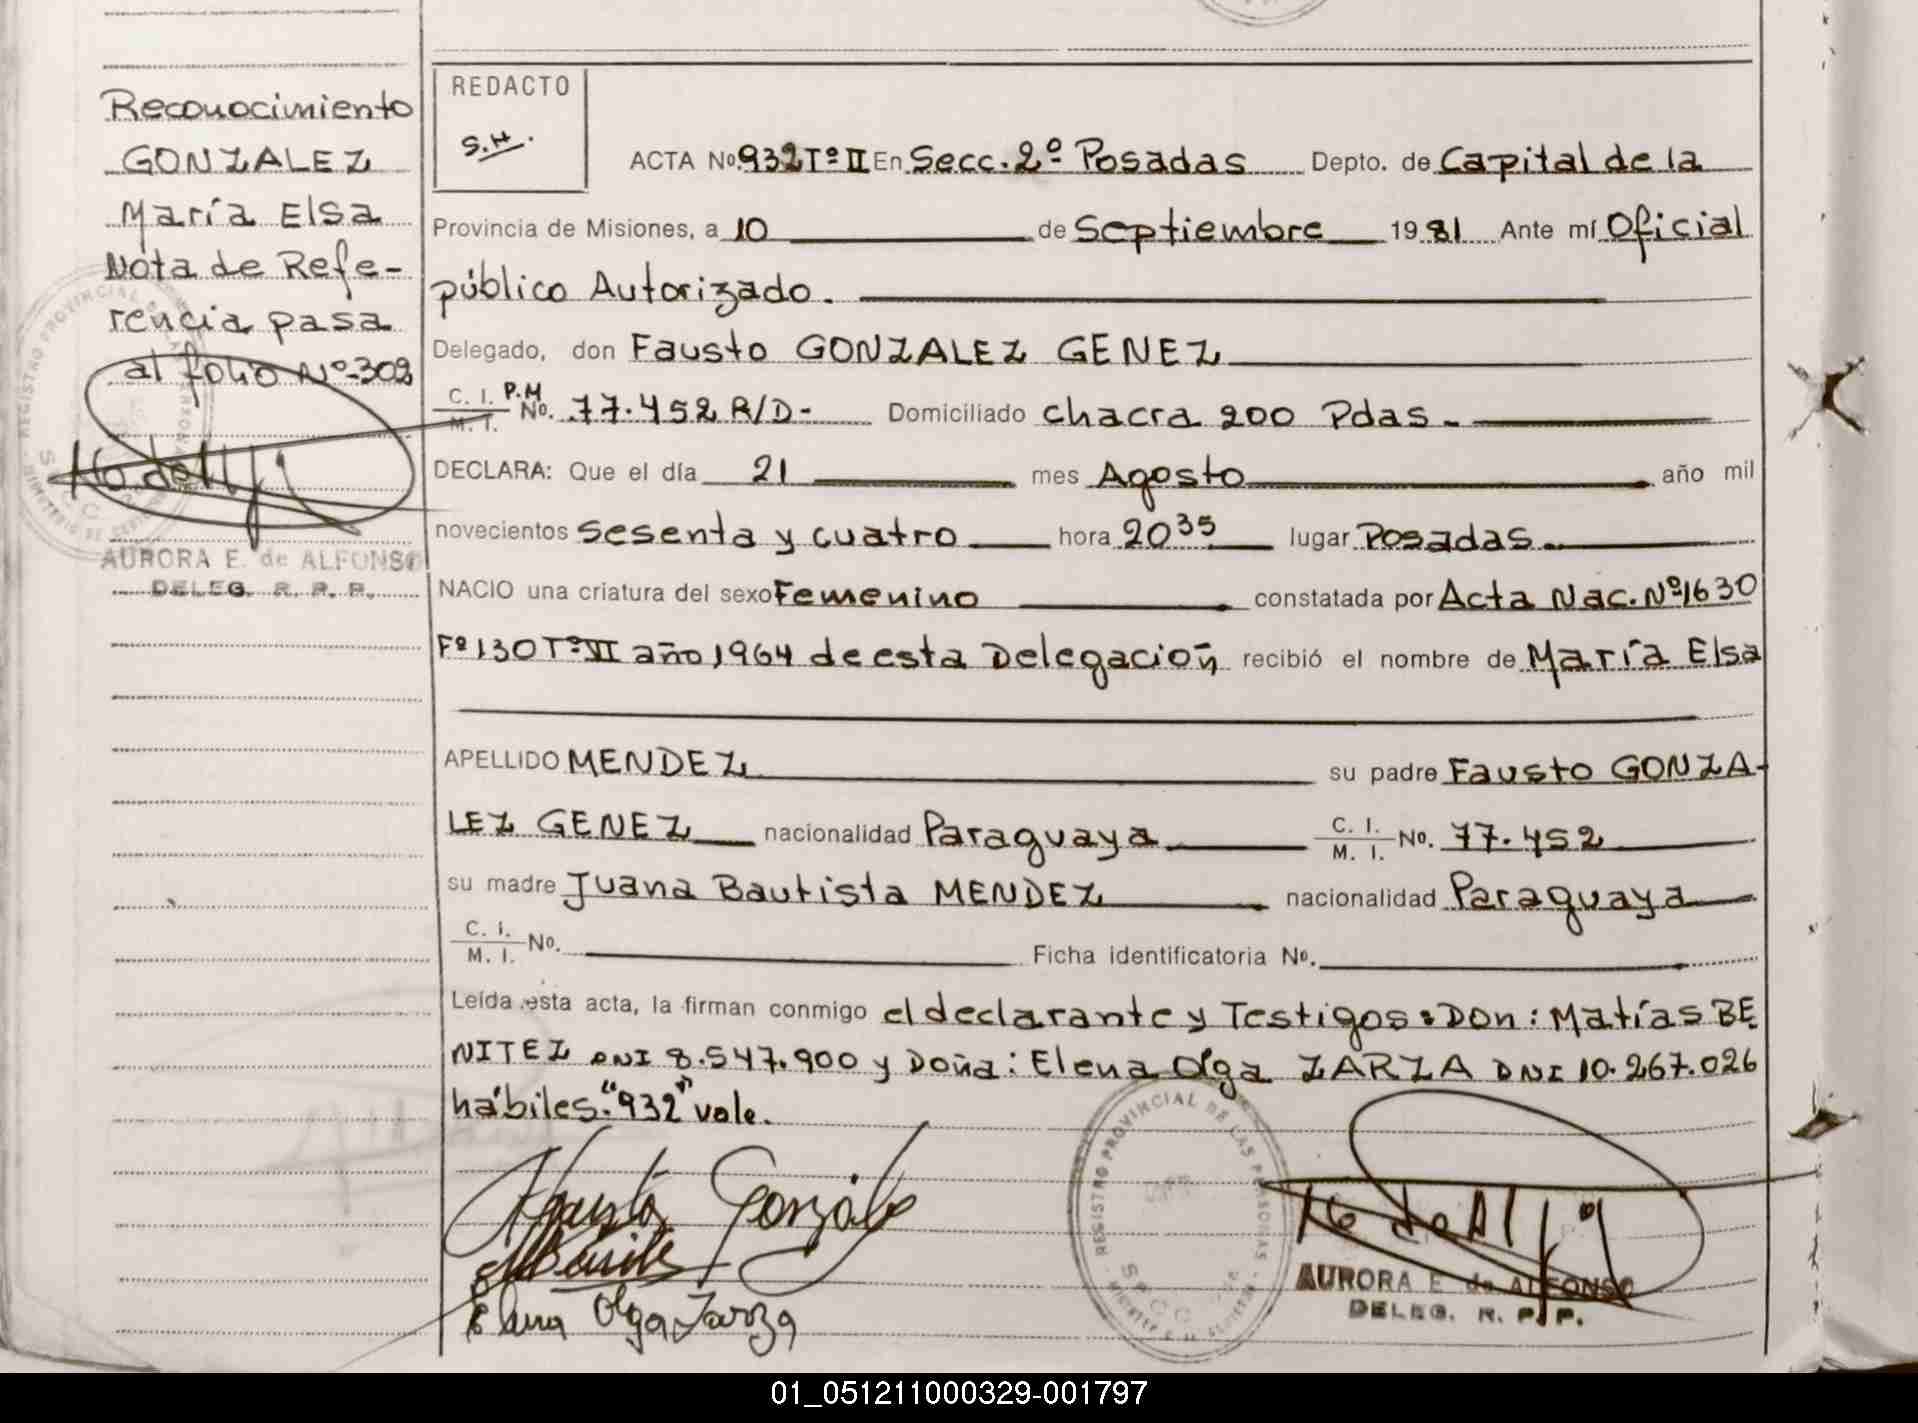 Reconocimiento
GONZALEZ
María Elsa
Nota de Refe-
rencia pasa
al folio Nº-302
AURORA E. de ALFONSO
DELEG. R. P. P.
REDACTO
S.H.
ACTA Nº 932 Tº II En Secc. 2º Posadas Depto. de Capital de la
Provincia de Misiones, a 10 de Septiembre 1981 Ante mí Oficial
público Autorizado.
Delegado, don Fausto GONZALEZ GENEZ
C. I. P.M
M. I. Nº. 77.452 R/D- Domiciliado chacra 200 Pdas.
DECLARA: Que el día 21 mes Agosto año mil
novecientos sesenta y cuatro hora 20 35 lugar Posadas.
NACIO una criatura del sexo Femenino constatada por Acta Nac. Nº 1630
Fº 130 Tº VI año 1964 de esta Delegación, recibió el nombre de María Elsa
APELLIDO MENDEZ su padre Fausto GONZA-
LEZ GENEZ nacionalidad Paraguaya C. I. M. I. Nº. 77.452
su madre Juana Bautista MENDEZ nacionalidad Paraguaya
C. I. M. I. Nº. Ficha identificatoria Nº.
Leída esta acta, la firman conmigo el declarante y Testigos: Don: Matías BE
NITEZ DNI 8.547.900 y Doña: Elena Olga ZARZA DNI 10.267.026
hábiles. "932" vale.
Fausto González
Elena Olga Zarza
REGISTRO PROVINCIAL DE LAS PERSONAS
AURORA E. de ALFONSO
DELEG. R. P. P.
01_051211000329-001797